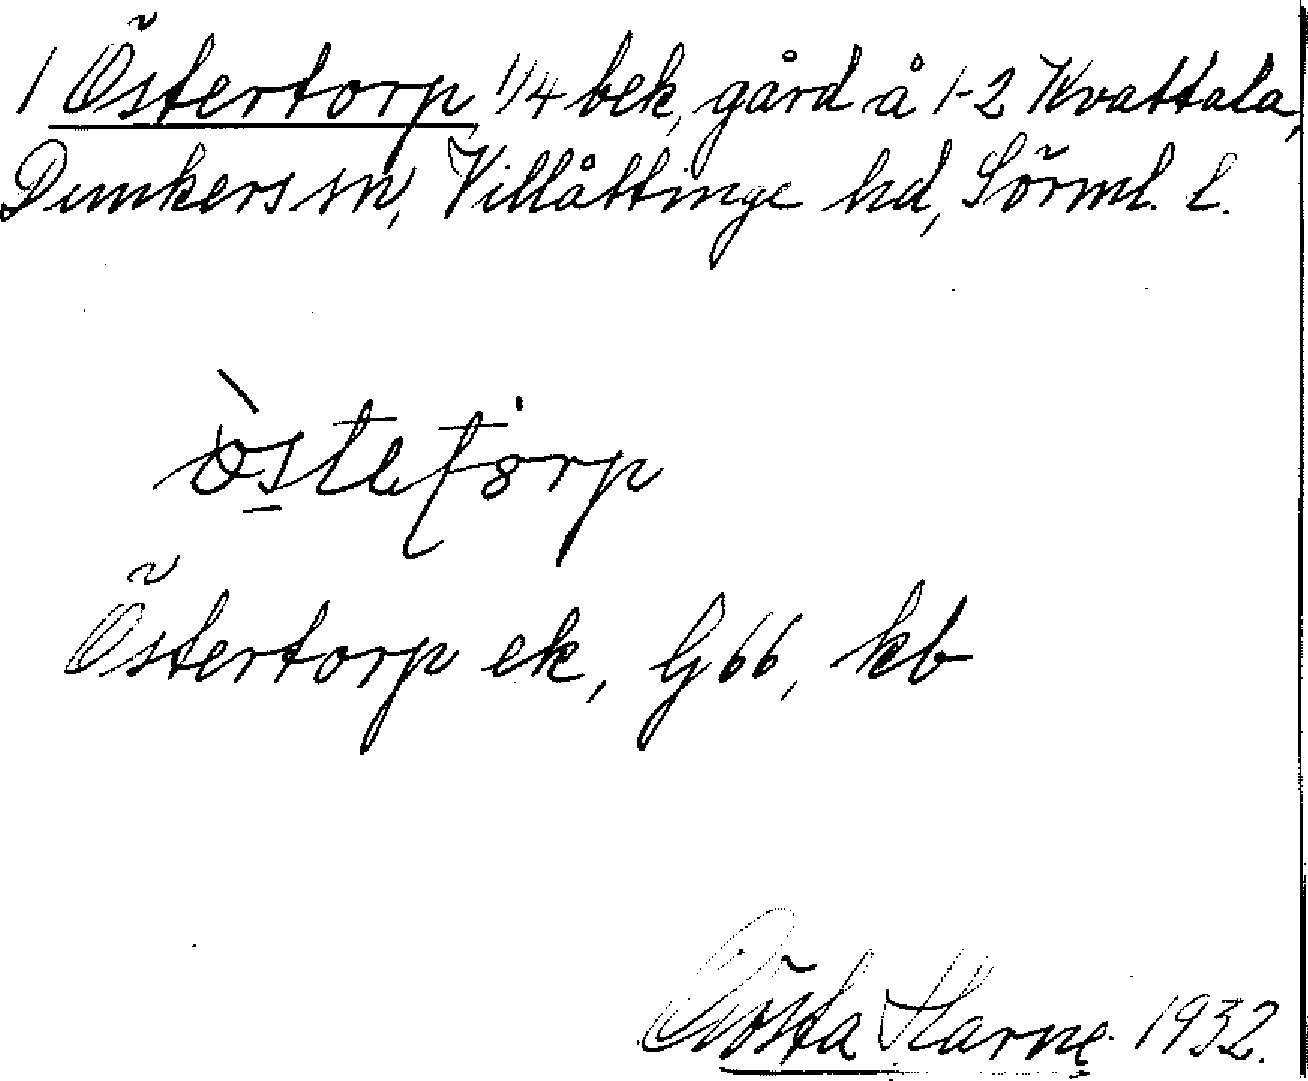 1 Östertorp 1/4 bek, gård å 1-2 Kvattala,
Dunkers sn, Villåttinge hd, Sörml. l.
Östertorp ek, G66, kb
Gösta Harne 1932.